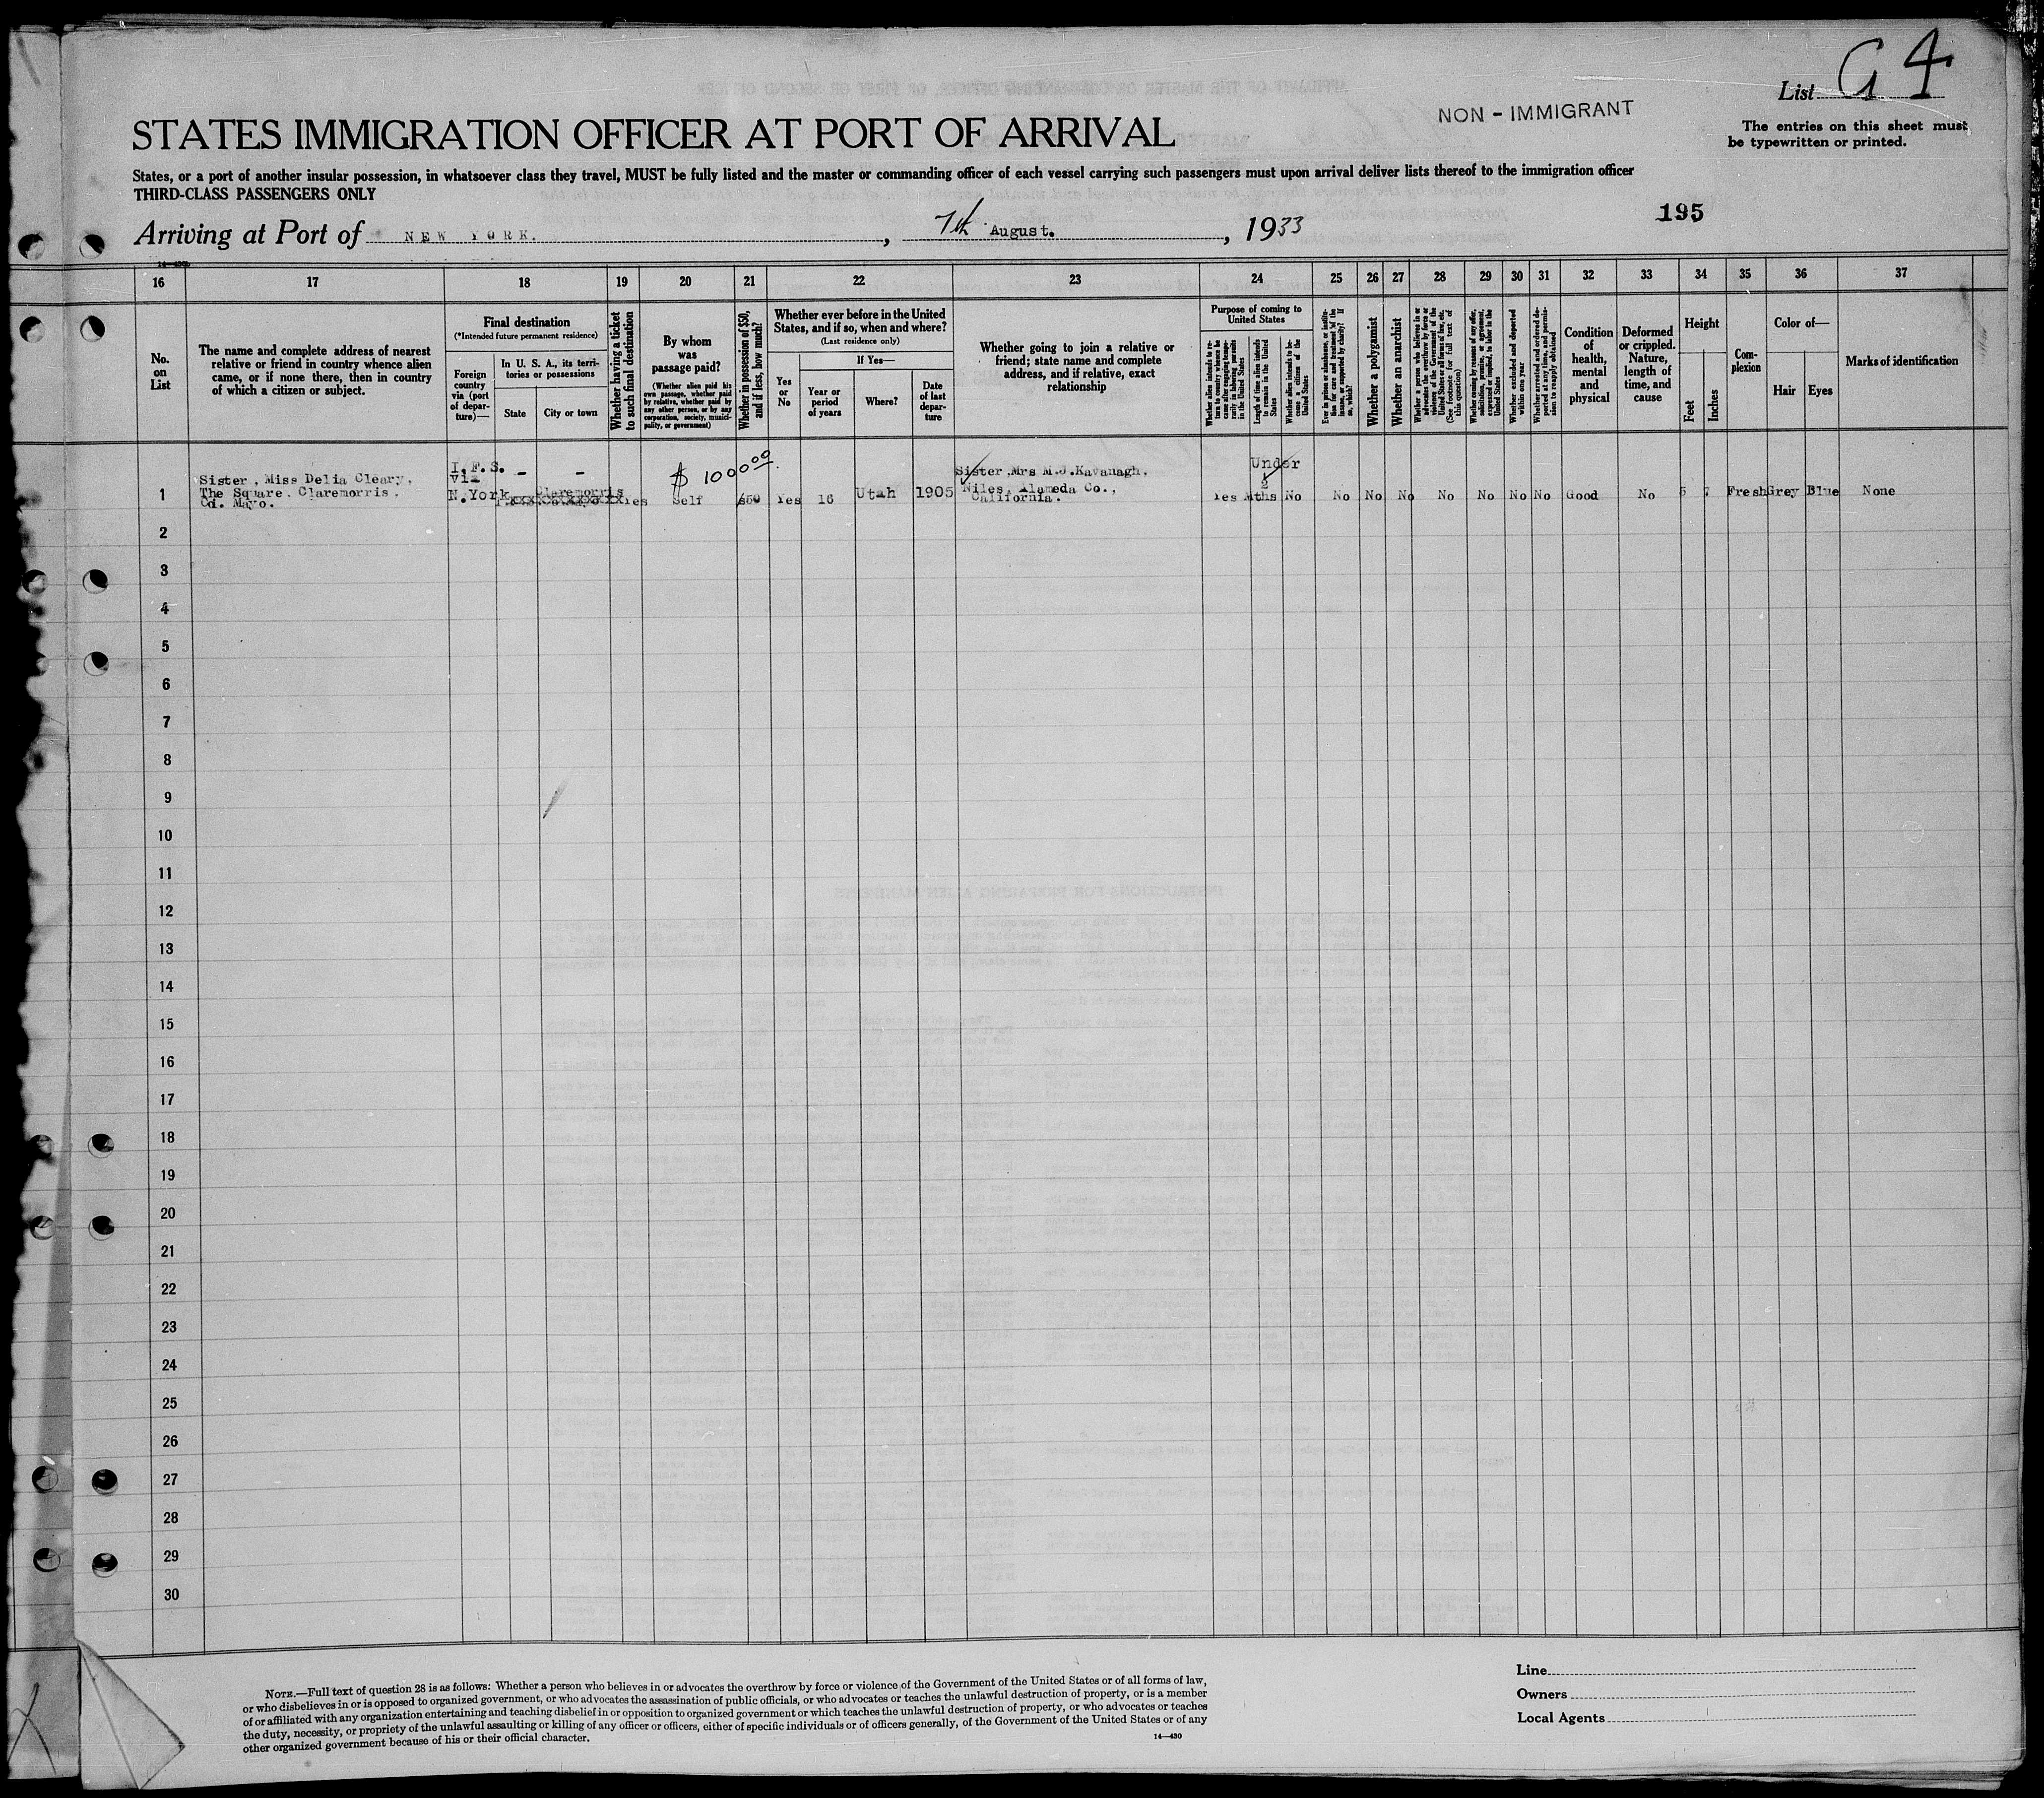 List G 4
NON - IMMIGRANT
The entries on this sheet must
be typewritten or printed.
STATES IMMIGRATION OFFICER AT PORT OF ARRIVAL
States, or a port of another insular possession, in whatsoever class they travel, MUST be fully listed and the master or commanding officer of each vessel carrying such passengers must upon arrival deliver lists thereof to the immigration officer
THIRD-CLASS PASSENGERS ONLY
195
Arriving at Port of NEW YORK. , 7th August. , 1933
16 17 18 19 20 21 22 23 24 25 26 27 28 29 30 31 32 33 34 35 36 37
No.
on
List
The name and complete address of nearest
relative or friend in country whence alien
came, or if none there, then in country
of which a citizen or subject.
Final destination
(*Intended future permanent residence)
Foreign
country
via (port
of depar-
ture)—
In U. S. A., its terri-
tories or possessions
State
City or town
Whether having a ticket
to such final destination
By whom
was
passage paid?
(Whether alien paid his
own passage, whether paid
by relative, whether paid by
any other person, or by any
corporation, society, munici-
pality, or government)
Whether in possession of $50,
and if less, how much?
Whether ever before in the United
States, and if so, when and where?
(Last residence only)
Yes
or
No
If Yes—
Year or
period
of years
Where?
Date
of last
depar-
ture
Whether going to join a relative or
friend; state name and complete
address, and if relative, exact
relationship
Purpose of coming to
United States
Whether alien intends to re-
turn to country whence he
came after engaging tempo-
rarily in laboring pursuits
in the United States
Length of time alien intends
to remain in the United
States
Whether alien intends to be-
come a citizen of the
United States
Ever in prison or almshouse, or institu-
tion for care and treatment of the
insane, or supported by charity? If
so, which?
Whether a polygamist
Whether an anarchist
Whether a person who believes in or
advocates the overthrow by force or
violence of the Government of the
United States or all forms of law, etc.
(See footnote for full text of
this question)
Whether coming by reason of any offer,
solicitation, promise, or agreement,
expressed or implied, to labor in the
United States
Whether excluded and deported
within one year
Whether arrested and ordered de-
ported at any time, and permis-
sion to reapply obtained
Condition
of
health,
mental
and
physical
Deformed
or crippled.
Nature,
length of
time, and
cause
Height
Feet
Inches
Com-
plexion
Color of—
Hair
Eyes
Marks of identification
1
Sister, Miss Delia Cleary,
The Square, Claremorris,
Co. Mayo.
I.F.S.
via
N.York
- -
Claremorris
Yes
$ 100000.
Self
$50
Yes 16 Utah 1905
Sister, Mrs M.J.Kavanagh,
Niles, Alameda Co.,
California.
Yes
Under
2
Mths
No No No No No No No No Good No 5 7 Fresh Grey Blue None
2
3
4
5
6
7
8
9
10
11
12
13
14
15
16
17
18
19
20
21
22
23
24
25
26
27
28
29
30
NOTE.—Full text of question 28 is as follows: Whether a person who believes in or advocates the overthrow by force or violence of the Government of the United States or of all forms of law,
or who disbelieves in or is opposed to organized government, or who advocates the assassination of public officials, or who advocates or teaches the unlawful destruction of property, or is a member
of or affiliated with any organization entertaining and teaching disbelief in or opposition to organized government or which teaches the unlawful destruction of property, or who advocates or teaches
the duty, necessity, or propriety of the unlawful assaulting or killing of any officer or officers, either of specific individuals or of officers generally, of the Government of the United States or of any
other organized government because of his or their official character.
14—430
Line
Owners
Local Agents